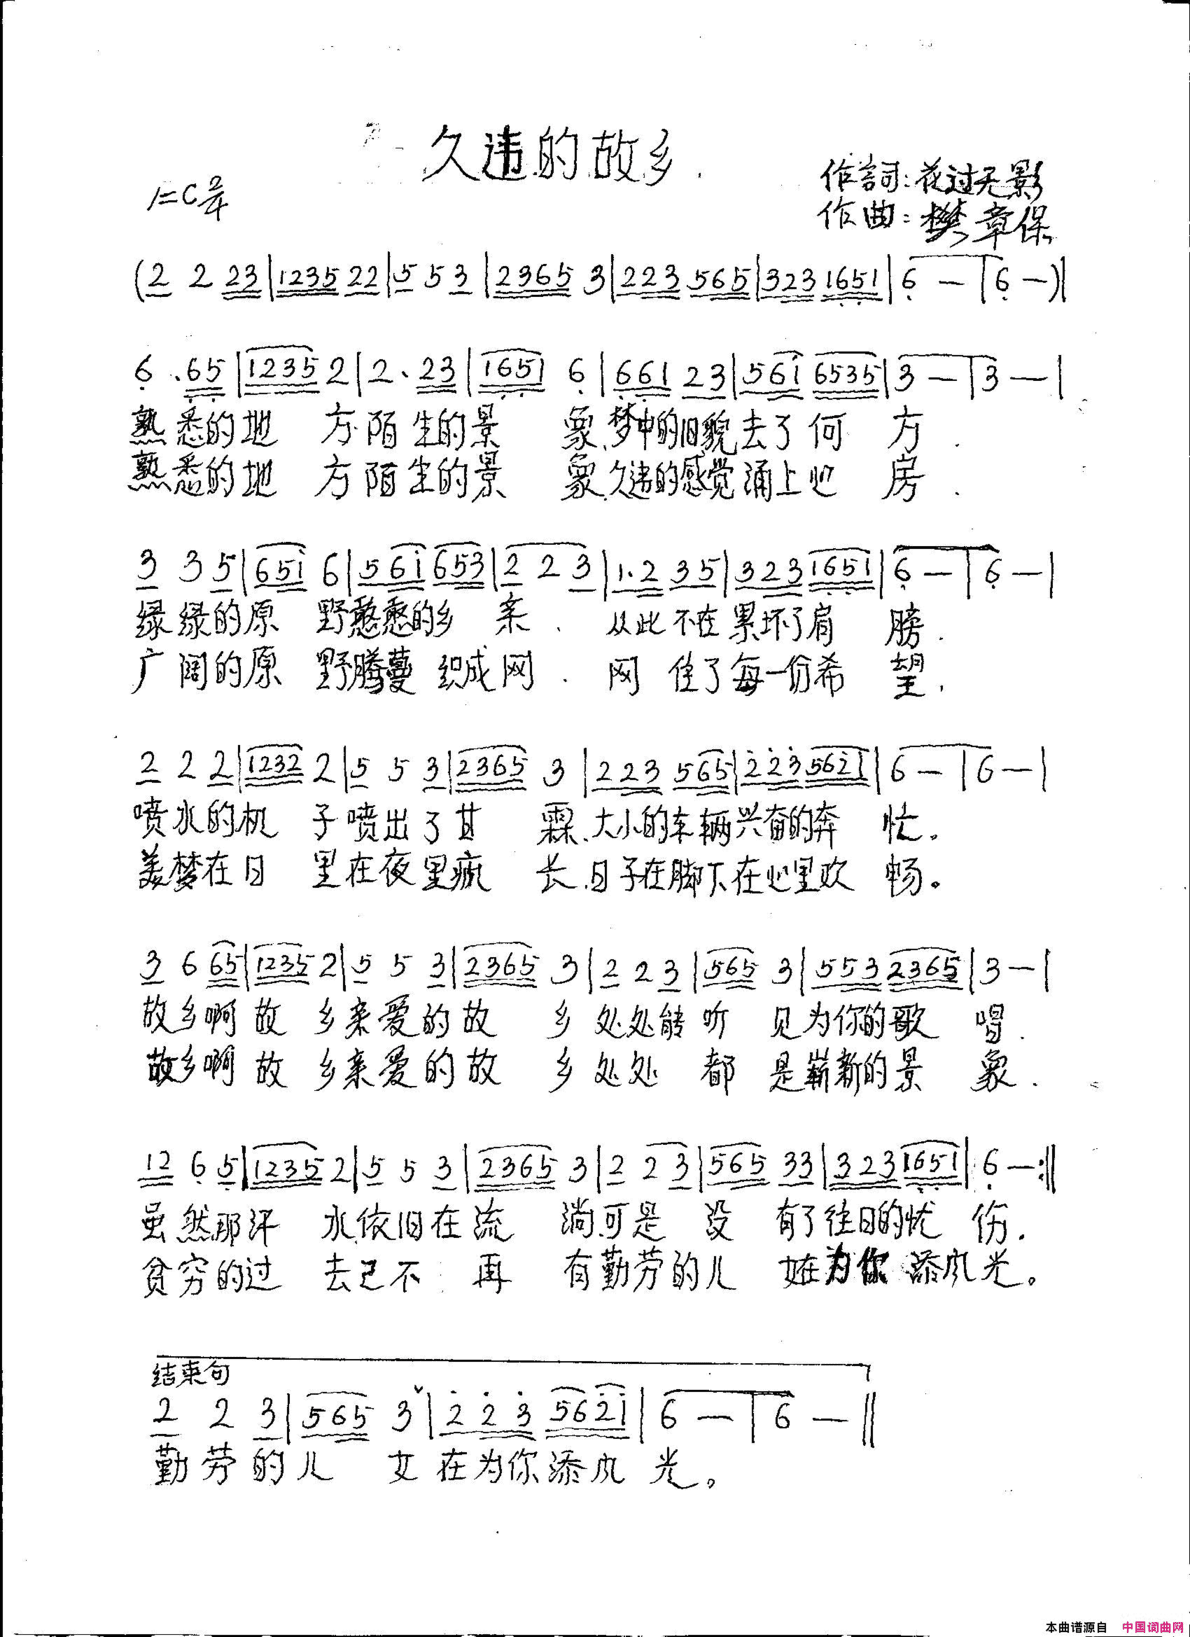 久违的故乡
1=C 2/4
作詞:花过无影
作曲:樊章保
(2 2 23|1235 22|5 5 3|2365 3|223 565|323 1651|6 —|6 —)|
6 .65|1235 2|2. 23|1651 6|661 23|561 6535|3 —|3 —|
熟悉的地 方陌生的景 象,梦中的旧貌去了何 方.
熟悉的地 方陌生的景 象,久违的感觉涌上心 房.
3 3 5|651 6|561 653|2 2 3|1.2 35|323 1651|6 —|6 —|
绿绿的原 野憨憨的乡 亲. 从此不在累坏了肩 膀.
广阔的原 野腾蔓 织成网. 网 住了每一份希 望.
2 2 2|1232 2|5 5 3|2365 3|223 565|223 5621|6 —|6 —|
喷水的机 子喷出了甘 霖.大小的车辆兴奋的奔 忙。
美梦在日 里在夜里疯 长.日子在脚下在心里欢 畅。
3 6 65|1235 2|5 5 3|2365 3|2 2 3|565 3|553 2365|3 —|
故乡啊故 乡亲爱的故 乡 处处能听 见为你的歌 唱.
故乡啊故 乡亲爱的故 乡 处处 都 是崭新的景 象.
12 6 5|1235 2|5 5 3|2365 3|2 2 3|565 33|323 1651|6 —:||
虽然那汗 水依旧在流 淌可是 没 有了往日的忧 伤.
贫穷的过 去已不 再 有勤劳的儿 女在为你 添风光。
结束句
2 2 3|565 3ˇ|2 2 3 5621|6 —|6 —||
勤劳的儿 女在为你添风 光。
本曲谱源自 中国词曲网